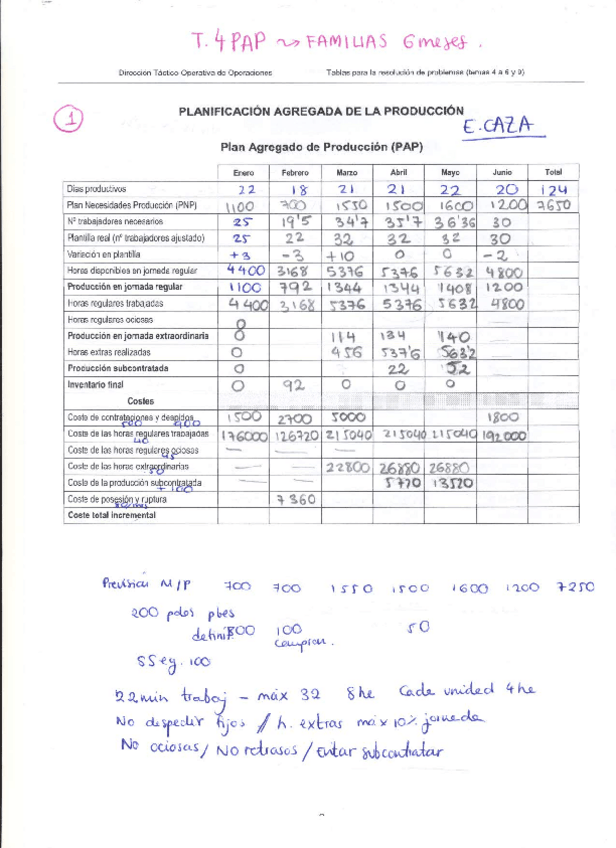 T. 4 PAP ~> FAMILIAS 6 meses.
Dirección Táctico Operativa de Operaciones Tablas para la resolución de problemas (temas 4 a 6 y 9)
1 PLANIFICACIÓN AGREGADA DE LA PRODUCCIÓN
E. CAZA
Plan Agregado de Producción (PAP)
Enero Febrero Marzo Abril Mayo Junio Total
Días productivos 22 18 21 21 22 20 124
Plan Necesidades Producción (PNP) 1100 700 1550 1500 1600 1200 7650
Nº trabajadores necesarios 25 19'5 34'7 35'7 36'36 30
Plantilla real (nº trabajadores ajustado) 25 22 32 32 32 30
Variación en plantilla +3 -3 +10 0 0 -2
Horas disponibles en jornada regular 4400 3168 5376 5376 5632 4800
Producción en jornada regular 1100 792 1344 1344 1408 1200
Horas regulares trabajadas 4400 3168 5376 5376 5632 4800
Horas regulares ociosas 0
Producción en jornada extraordinaria 0 114 134 140
Horas extras realizadas 0 456 537'6 563'2
Producción subcontratada 0 22 52
Inventario final 0 92 0 0 0
Costes
Coste de contrataciones y despidos 1500 2700 5000 1800
500 900
Coste de las horas regulares trabajadas 176000 126720 215040 215040 215040 192000
40
Coste de las horas regulares ociosas — —
45
Coste de las horas extraordinarias — — 22800 26880 26880
50
Coste de la producción subcontratada 5770 13520
+ 100
Coste de posesión y ruptura 7360
80/mes
Coste total incremental
Previsión M/P 700 700 1550 1500 1600 1200 7250
200 pdos ptes
definit. 300 100 50
compran.
SSeg. 100
22 min trabaj - máx 32 8he Cada unidad 4he
No despedir fijos // h. extras máx 10% jornada
No ociosas / No retrasos / Evitar subcontratar